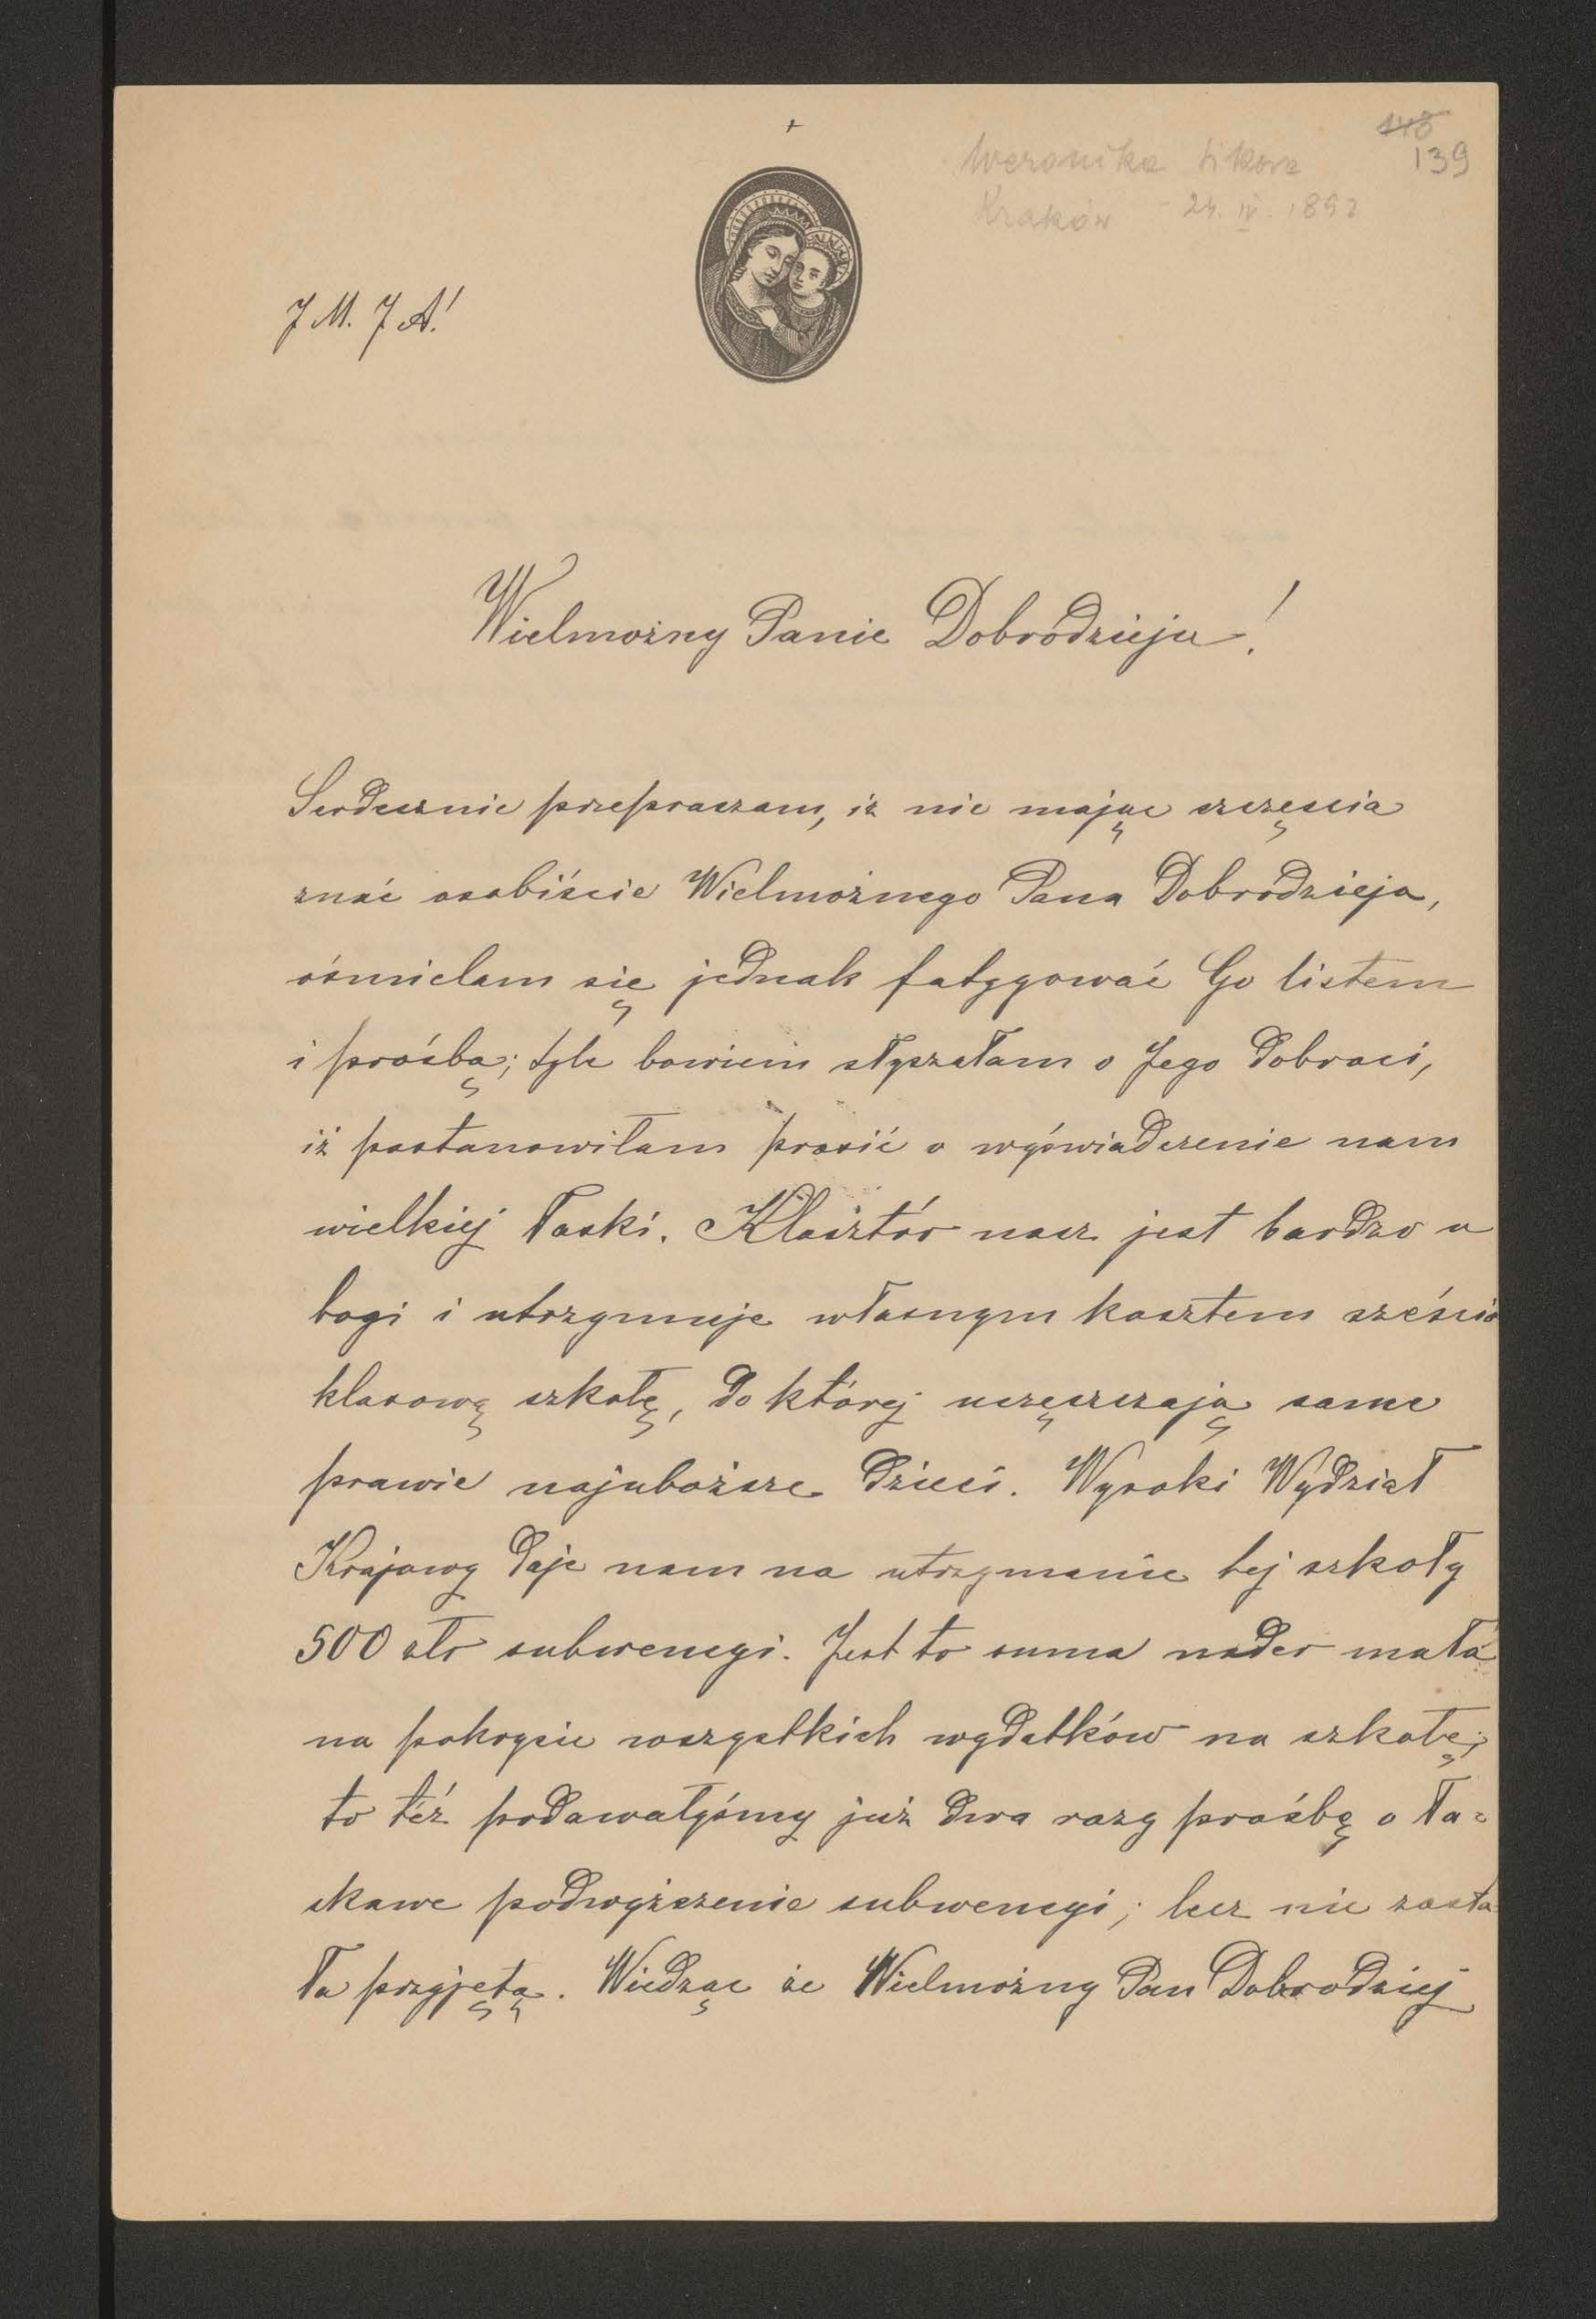 148
139
Weronika Sikora
Kraków - 24. IV. 1892
J M. J A!
Wielmożny Panie Dobrodzieju!
Serdecznie przepraszam, iż nie mając szczęscia
znać osobiście Wielmożnego Pana Dobrodzieja,
ośmielam się jednak fatygować Go listem
i prośbą; tyle bowiem słyszałam o Jego dobroci,
iż postanowiłam prosić o wyświadczenie nam
wielkiej łaski. Klasztór nasz jest bardzo u
bogi i utrzymuje własnym kosztem sześcio
klasową szkołę, do której uczęszczają same
prawie najuboższe dzieci. Wysoki Wydział
Krajowy daje nam na utrzymanie tej szkoły
500 złr subwencyi. Jest to suma nader mała
na pokrycie wszystkich wydatków na szkołę;
to téż podawałyśmy już dwa razy prośbę o ła=
skawe podwyższenie subwencyi; lecz nie zosta=
ła przyjętą. Wiedząc że Wielmożny Pan Dobrodziej